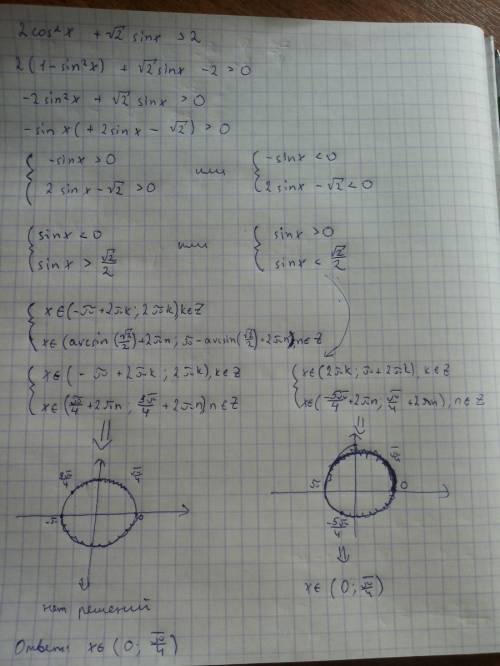 2cos²x + √2 sinx > 2
2(1-sin²x) + √2 sinx - 2 > 0
-2sin²x + √2 sinx > 0
-sinx(+2sinx - √2) > 0
{ -sinx > 0 или { -sinx < 0
{ 2sinx - √2 > 0 { 2sinx - √2 < 0
{ sinx < 0 или { sinx > 0
{ sinx > √2/2 { sinx < √2/2
{ x∈(-π+2πk; 2πk), k∈Z
{ x∈(arcsin(√2/2)+2πn; π-arcsin(√2/2)+2πn) n∈Z
{ x∈(-π+2πk; 2πk), k∈Z
{ x∈(π/4+2πn; 3π/4+2πn) n∈Z
{ x∈(2πk; π+2πk), k∈Z
{ x∈(-5π/4+2πn; π/4+2πn), n∈Z
⇓
3π/4 π/4
-π 0
нет решений
⇓
π/4
π 0
-5π/4
⇓
x∈(0; π/4)
Ответ: x∈(0; π/4)